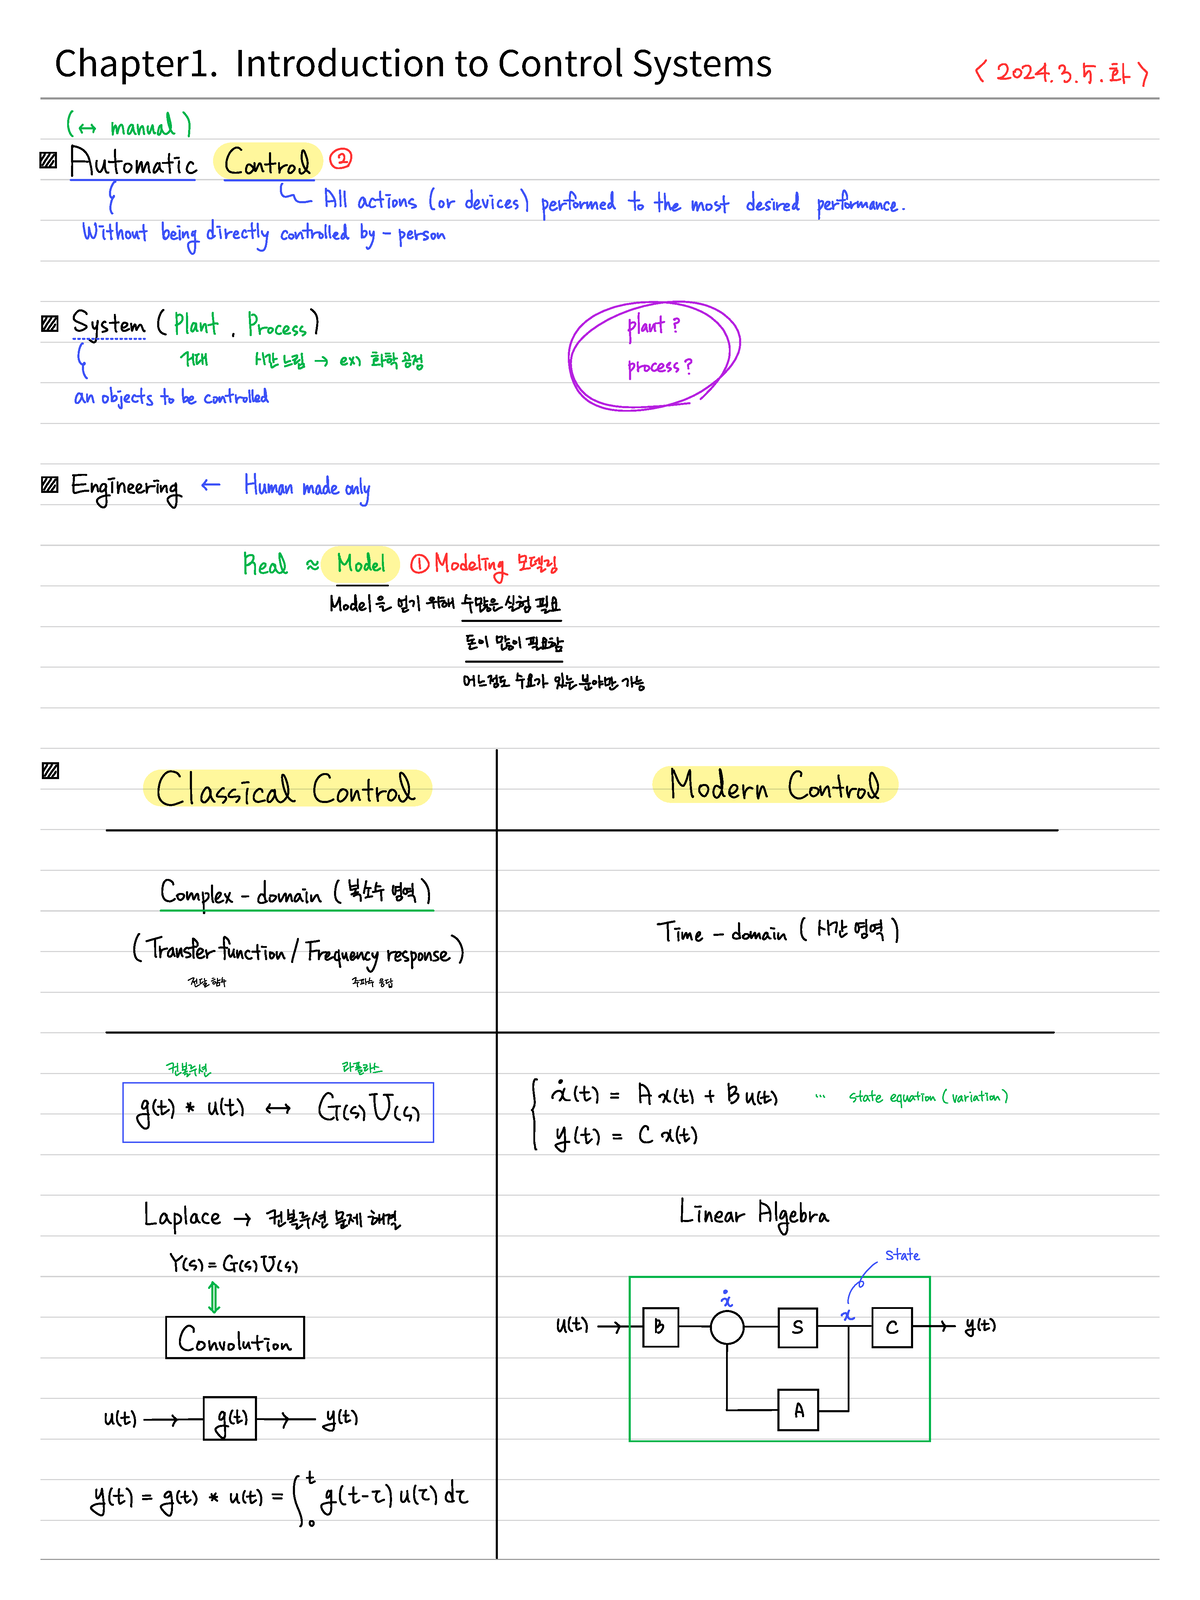 Chapter1. Introduction to Control Systems
< 2024.3.5.화 >
(↔ manual)
Automatic Control ②
All actions (or devices) performed to the most desired performance.
Without being directly controlled by - person
System (Plant, Process)
거대 시간 느림 → ex) 화학 공정
an objects to be controlled
plant?
process?
Engineering ← Human made only
Real ≈ Model ① Modeling 모델링
Model을 얻기 위해 수많은 실험 필요
돈이 많이 필요함
어느정도 수요가 있는 분야만 가능
Classical Control
Modern Control
Complex - domain (복소수 영역)
(Transfer function / Frequency response)
전달 함수 주파수 응답
Time - domain (시간 영역)
컨볼루션 라플라스
g(t) * u(t) ↔ G(s)U(s)
ẋ(t) = A x(t) + B u(t) ... state equation (variation)
y(t) = C x(t)
Laplace → 컨볼루션 문제 해결
Y(s) = G(s)U(s)
Convolution
u(t) g(t) y(t)
y(t) = g(t) * u(t) = ∫₀ᵗ g(t-τ) u(τ) dτ
Linear Algebra
state
u(t) B ẋ S x C y(t)
A